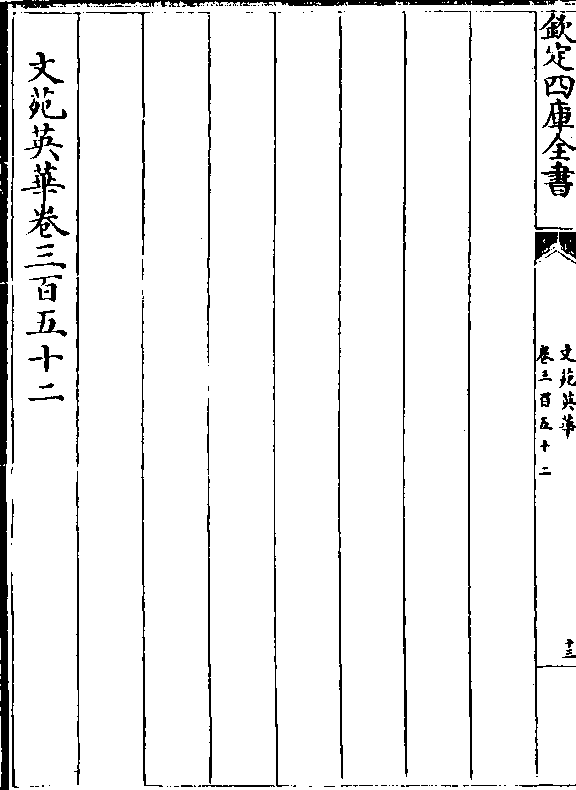 欽定四庫全書
文苑英華
卷三百五十二
十三
文苑英華卷三百五十二